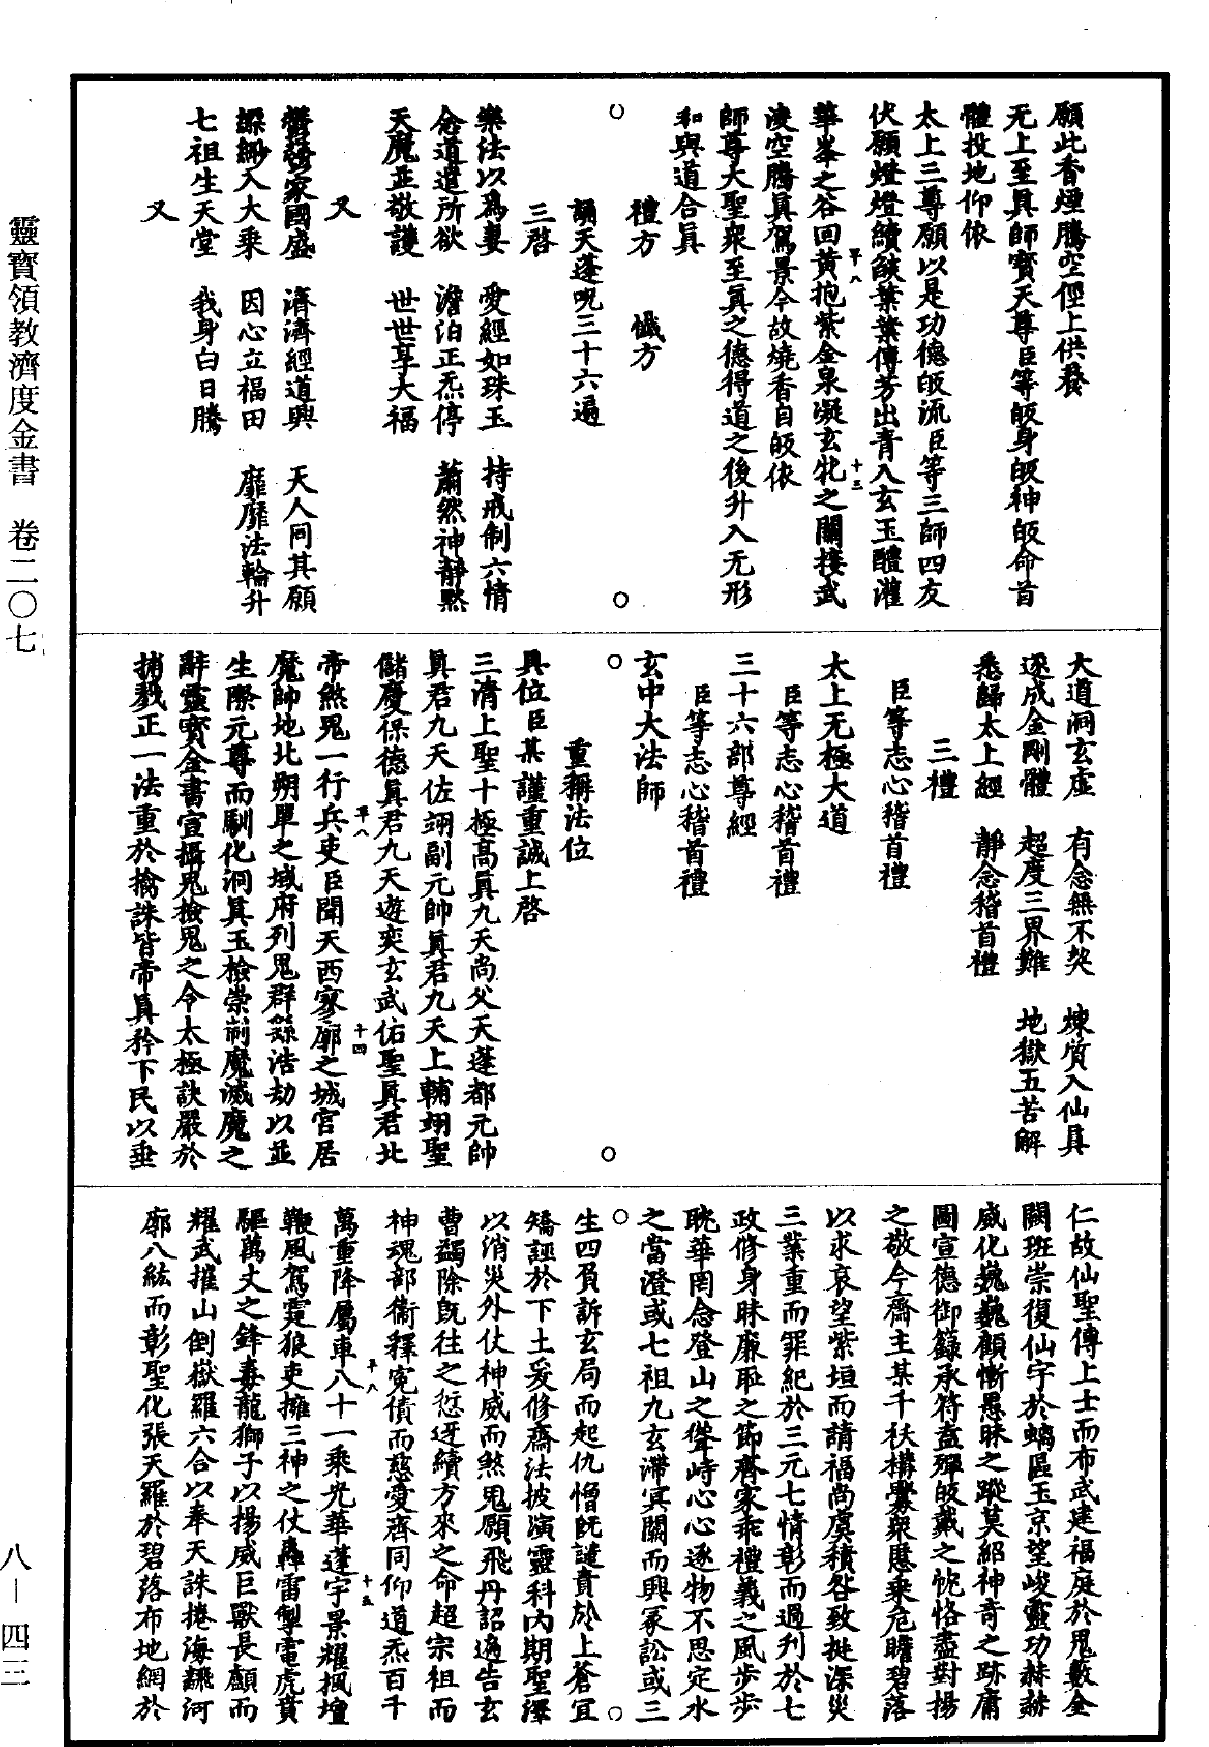 願此香煙騰空徑上供養
无上至真師寶天尊臣等皈身皈神皈命首
體投地仰依
太上三尊願以是功德皈流臣等三師四友
伏願燈燈續燄葉葉傳芳出青入玄玉醴灌
華峯之谷回黃抱紫金泉凝玄牝之關接武
凌空騰真駕景今故燒香自皈依
師尊大聖衆至真之德得道之後升入无形
和與道合真
禮方　懺方
誦天蓬呪三十六遍
三啓
樂法以爲妻　愛經如珠玉　持戒制六情
念道遣所欲　澹泊正炁停　蕭然神靜默
天魔並敬護　世世享大福
又
鬱鬱家國盛　濟濟經道興　天人同其願
縹緲入大乘　因心立福田　靡靡法輪升
七祖生天堂　我身白日騰
又
大道洞玄虛　有念無不契　煉質入仙真
遂成金剛體　超度三界難　地獄五苦解
悉歸太上經　靜念稽首禮
三禮
臣等志心稽首禮
太上无極大道
臣等志心稽首禮
三十六部尊經
臣等志心稽首禮
玄中大法師
重稱法位
具位臣某謹重誠上啓
三清上聖十極高真九天尚父天蓬都元帥
真君九天佐翊副元帥真君九天上輔翊聖
儲慶保德真君九天遊奕玄武佑聖真君北
帝煞鬼一行兵吏臣聞天西寥廓之城宮居
魔帥地北朔單之域府列鬼群繇浩劫以並
生際元尊而馴化洞真玉檢崇制魔滅魔之
辭靈寶金書宣攝鬼檢鬼之令太極訣嚴於
捕戮正一法重於擒誅皆帝真矜下民以垂
仁故仙聖傳上士而布武建福庭於鬼數金
闕班崇復仙宇於蝸區玉京望峻靈功赫赫
威化巍巍顧慚愚昧之蹤莫紹神奇之跡庸
圖宣德御籙承符盍殫皈戴之忱恪盡對揚
之敬今齋主某千袄構釁衆慝乘危瞻碧落
以求哀望紫垣而請福尚虞積咎致挻深災
三業重而罪紀於三元七情彰而過刋於七
政修身昧廉恥之節齊家乖禮義之風步步
耽華罔念登山之聳峙心心逐物不思定水
之當澄或七祖九玄滯冥關而興冢訟或三
生四負訴玄局而起仇憎旣譴責於上蒼宜
矯誣於下土爰修齋法披演靈科內期聖澤
以消災外仗神威而煞鬼願飛丹詔遍告玄
曹蠲除旣往之愆迓續方來之命超宗祖而
神魂部衞釋冤債而慈愛齊同仰道炁百千
萬重降屬車八十一乘光華蓬宇景耀楓壇
鞭風駕霆狼吏擁三神之仗轟雷掣電虎賁
驅萬丈之鋒毒龍獅子以揚威巨獸長顱而
耀武摧山倒嶽羅六合以奉天誅捲海飜河
廓八紘而彰聖化張天羅於碧落布地網於
靈寶領教濟度金書　卷二〇七
八—四三